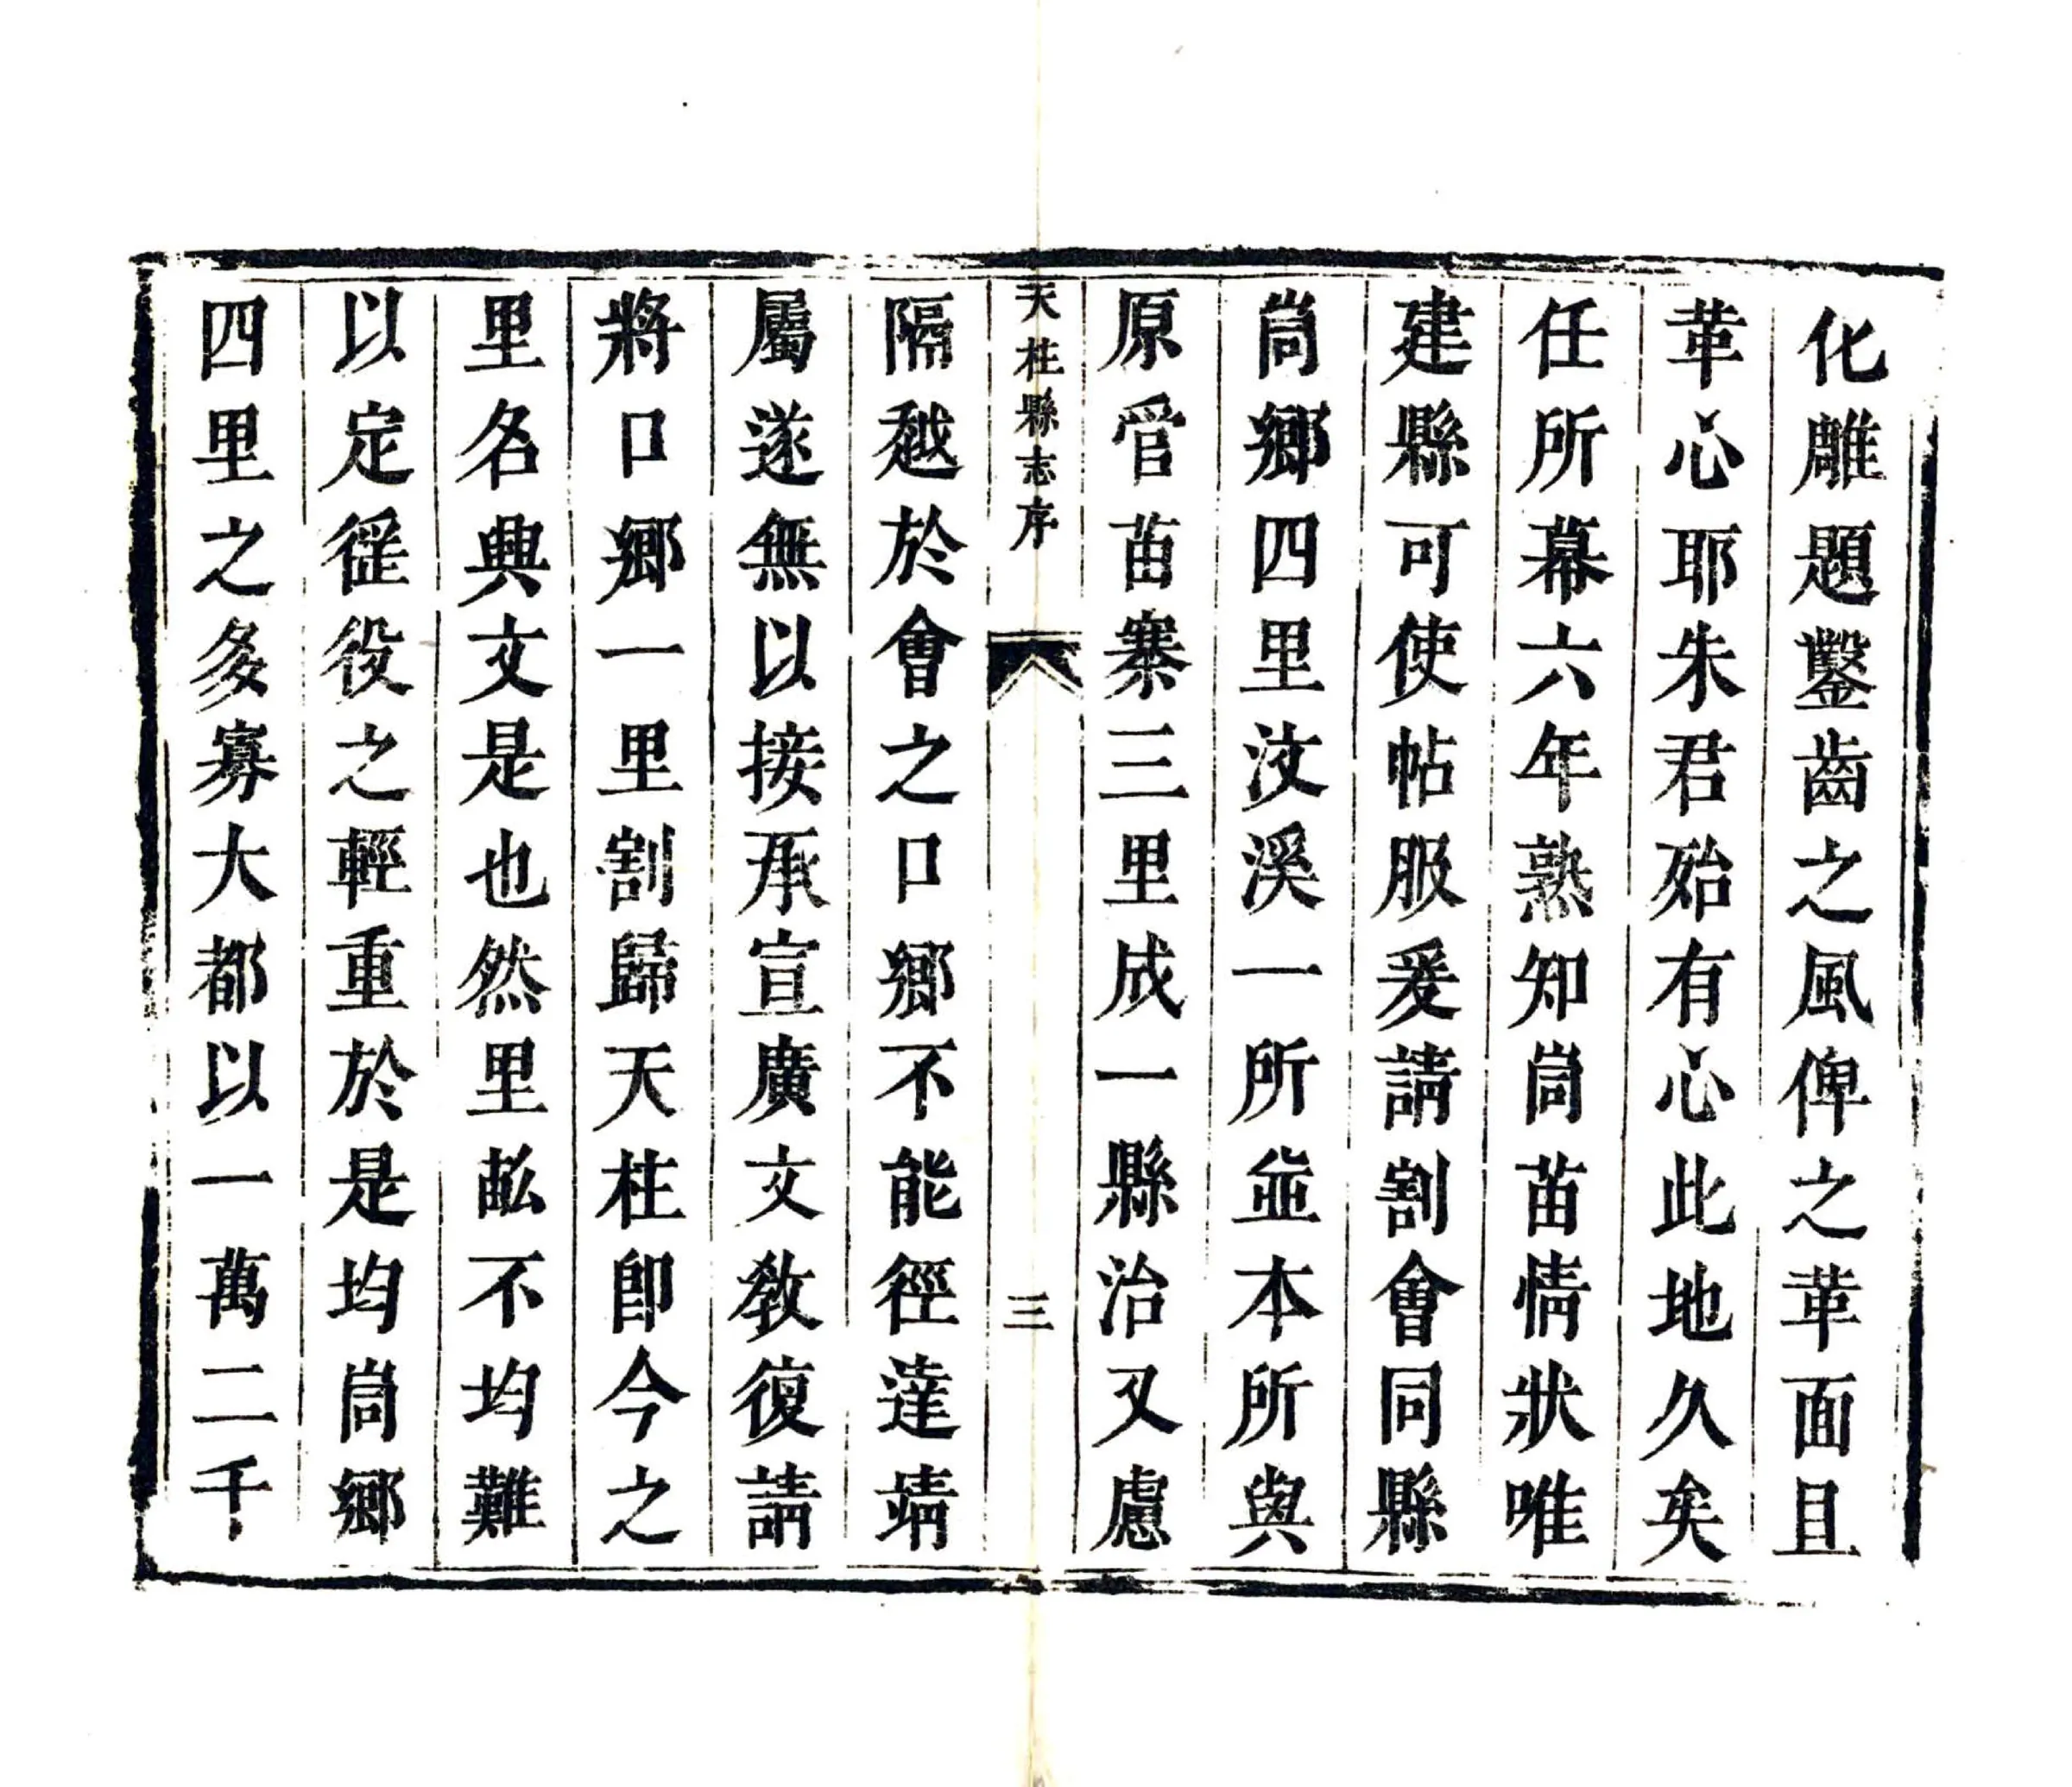 化雕題鑿齒之風俾之革面且
革心耶朱君殆有心此地久矣
任所幕六年熟知峝苗情狀唯
建縣可使帖服爰請割會同縣
峝鄉四里汶溪一所並本所與
原管苗寨三里成一縣治又慮
天柱縣志序
三
隔越於會之口鄉不能徑達靖
屬遂無以接承宣廣文教復請
將口鄉一里割歸天柱卽今之
里名興文是也然里畝不均難
以定徭役之輕重於是均峝鄉
四里之多寡大都以一萬二千